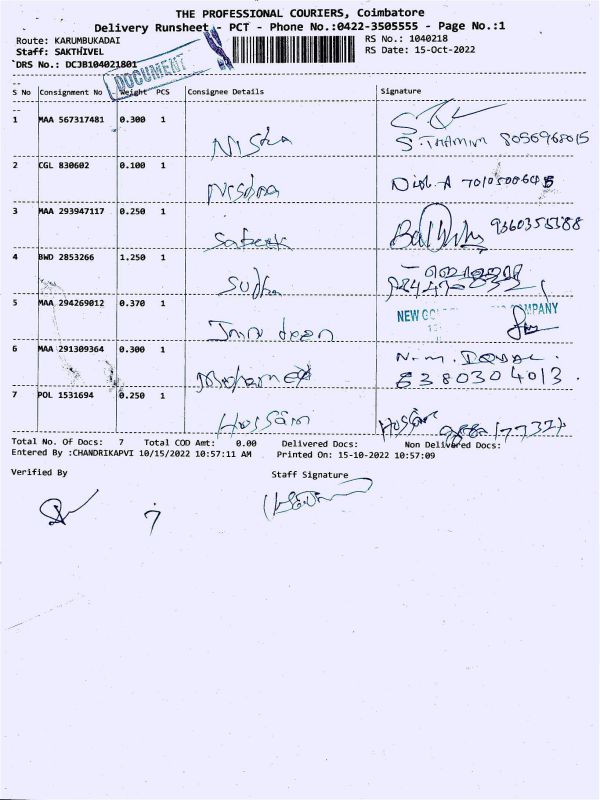 THE PROFESSIONAL COURIERS, Coimbatore
Delivery Runsheet - PCT - Phone No.:0422-3505555 - Page No.:1
Route: KARUMBUKADAI
RS No.: 1040218
Staff: SAKTHIVEL
RS Date: 15-Oct-2022
DRS No.: DCJB104021801
DOCUMENT
S No Consignment No Weight PCS Consignee Details Signature
1 MAA 567317481 0.300 1 Nisha
S. THAMIM 8056968015
2 CGL 830602 0.100 1 Nisha
3 MAA 293947117 0.250 1 9360355388
4 BWD 2853266 1.250 1 Sudha
5 MAA 294269012 0.370 1
NEW COMPANY
6 MAA 291309364 0.300 1 Mohamed
6380304013.
7 POL 1531694 0.250 1 Hussain Hussain
Total No. Of Docs: 7 Total COD Amt: 0.00 Delivered Docs: Non Delivered Docs:
Entered By :CHANDRIKAPVI 10/15/2022 10:57:11 AM Printed On: 15-10-2022 10:57:09
Verified By Staff Signature
7